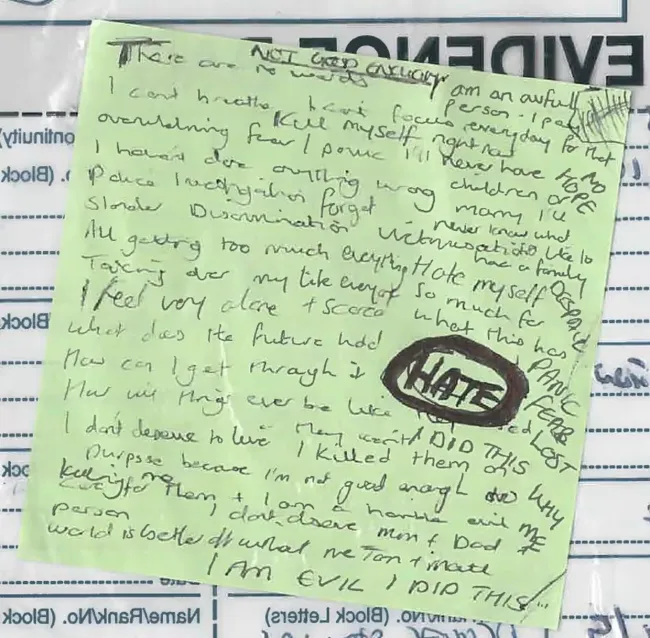 EVIDENCE
NOT GOOD ENOUGH
There are no words
I am an awful person - I pay
I cant breathe I cant focus everyday for that
overwhelming fear / panic
Kill myself right now
I'll never have children or
I havent done anything wrong
marry I'll
never know what
Police Investigation forget
its like to
have a family
Slander Discrimination Victimisation
All getting too much everything
Hate myself
Taking over my life everyday
so much for
what this has
I feel very alone + scared
What does the future hold
How can I get through it
How will things ever be like
I don't deserve to live
They went
NO
HOPE
DESPAIR
PANIC
FEAR
LOST
HATE
I DID THIS
WHY
ME
I killed them on
purpose because I'm not good enough to
care for them + I am a horrible evil
person
Killing me
I dont deserve mum + Dad
world is better off without me
I AM EVIL I DID THIS
Name/Rank/No. (Block
No. (Block Letters)